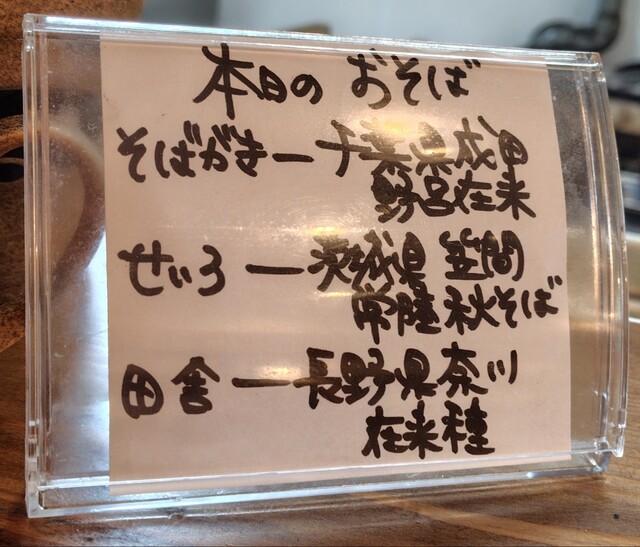 本日の おそば
そばがき ー 千葉県成田
野呂在来
せいろ ー 茨城県 笠間
常陸秋そば
田舎 ー 長野県奈川
在来種